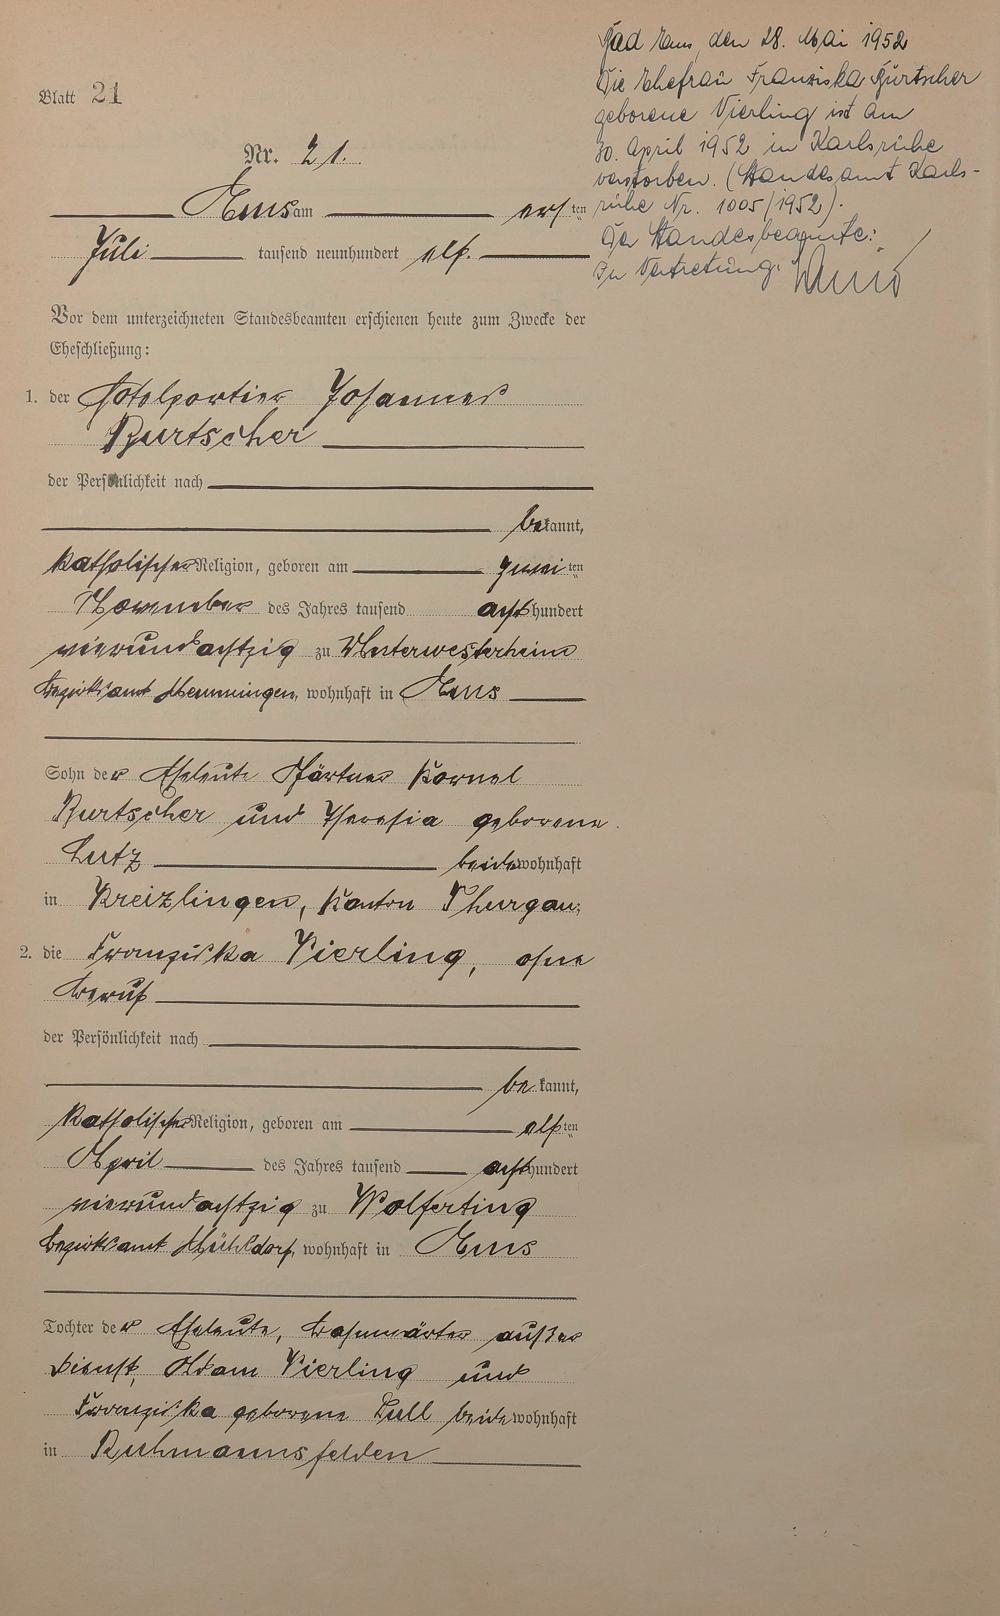 Blatt 21
Nr. 21.
Ems am ersten
Juli tausend neunhundert elf.
Vor dem unterzeichneten Standesbeamten erschienen heute zum Zwecke der
Eheschließung:
1. der Hotelportier Johannes
Burtscher
der Persönlichkeit nach
bekannt,
katholischer Religion, geboren am zweiten
November des Jahres tausend achthundert
vierundachtzig zu Unterwesterheim
Bezirksamt Memmingen, wohnhaft in Ems
Sohn der Eheleute Gärtner Kornel
Burtscher und Theresia geborene
Lutz beide wohnhaft
in Kreizlingen, Kanton Thurgau,
2. die Franziska Vierling, ohne
Beruf
der Persönlichkeit nach
bekannt,
katholischer Religion, geboren am elften
April des Jahres tausend achthundert
vierundachtzig zu Wolferting
Bezirksamt Mühldorf, wohnhaft in Ems
Tochter der Eheleute, Bahnwärter außer
Dienst, Adam Vierling und
Franziska geborene Lull beide wohnhaft
in Ruhmannsfelden
Bad Ems, den 28. Mai 1952
Die Ehefrau Franziska Burtscher
geborene Vierling ist am
30. April 1952 in Karlsruhe
verstorben. (Standesamt Karls-
ruhe Nr. 1005/1952).
Der Standesbeamte:
In Vertretung: